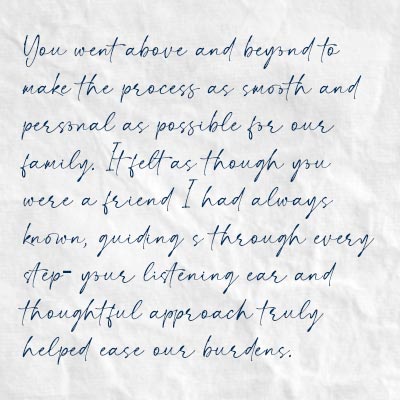 You went above and beyond to
make the process as smooth and
personal as possible for our
family. It felt as though you
were a friend I had always
known, guiding s through every
step- your listening ear and
thoughtful approach truly
helped ease our burdens.